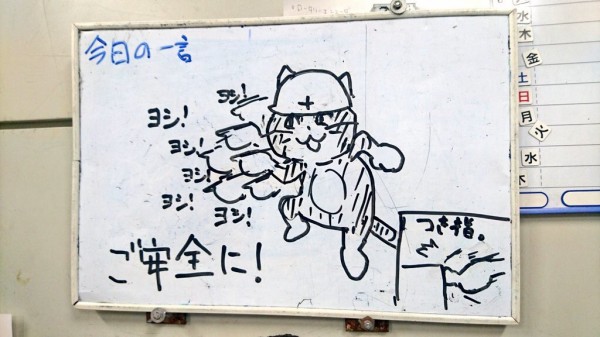 今日の一言
ヨシ!
ヨシ!
ヨシ!
ヨシ!
ヨシ!
ご安全に!
つき指。
水
木
金
土
日
月
火
水
木